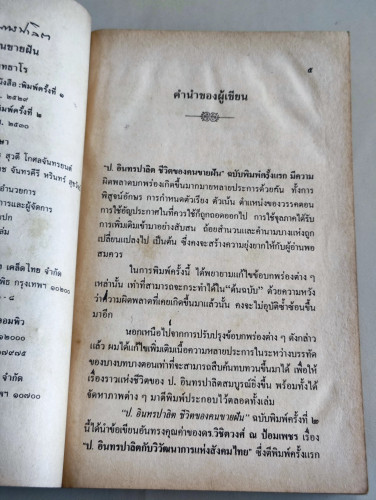 นขายฝัน
ทธาโร
พิมพ์ครั้งที่ ๑
. ๒๕๒๙
พิมพ์ครั้งที่ ๒
. ๒๕๓๐
ษา
สุวดี โกศลจันทรยนต์
จันทรศิริ หรินทร์
อำนวยการ
และผู้จัดการ
แปก
ส่ม
เคล็ดไทย จำกัด
กรุงเทพฯ ๑๐๒๐๐
- ๘
คอมพิว
๗๙๗๕
จำกัด
ทพฯ ๑๐๗๐๐
๕
คำนำของผู้เขียน
"ป. อินทรปาลิต ชีวิตของคนขายฝัน" ฉบับพิมพ์ครั้งแรก มีความ
ผิดพลาดบกพร่องเกิดขึ้นมากมายหลายประการด้วยกัน ทั้งการ
พิสูจน์อักษร การกำหนดตัวเรียง ตัวเน้น ตำแหน่งของวรรคตอน
การใช้อัญประกาศในที่ควรใช้ก็ถูกถอดออกไป การใช้จุลภาคได้รับ
การเพิ่มเติมเข้ามาอย่างสับสน ถ้อยสำนวนและคำนามบางแห่งถูก
เปลี่ยนแปลงไป เป็นต้น ซึ่งคงจะสร้างความยุ่งยากให้กับผู้อ่านพอ
สมควร
ในการพิมพ์ครั้งนี้ ได้พยายามแก้ไขข้อบกพร่องต่าง ๆ
เหล่านั้น เท่าที่สามารถจะกระทำได้ใน "ต้นฉบับ" ด้วยความหวัง
ว่าความผิดพลาดที่เคยเกิดขึ้นมาแล้วนั้น คงจะไม่อุบัติซ้ำซ้อนขึ้น
มาอีก
นอกเหนือไปจากการปรับปรุงข้อบกพร่องต่าง ๆ ดังกล่าว
แล้ว ผมได้แก้ไขเพิ่มเติมเนื้อความหลายประการในระหว่างบรรทัด
ของบางบททางตอนเท่าที่จะสามารถสืบค้นทบทวนขึ้นมาได้ เพื่อให้
เรื่องราวแห่งชีวิตของ ป. อินทรปาลิตสมบูรณ์ยิ่งขึ้น พร้อมทั้งได้
จัดหาภาพต่าง ๆ มาตีพิมพ์ประกอบไว้ตลอดทั้งเล่ม
"ป. อินทรปาลิต ชีวิตของคนขายฝัน" ฉบับพิมพ์ครั้งที่ ๒
นี้ได้นำข้อเขียนอันทรงคุณค่าของดร.วิชิตวงศ์ ณ ป้อมเพชร เรื่อง
"ป. อินทรปาลิตกับวิวัฒนาการแห่งสังคมไทย" ซึ่งตีพิมพ์ครั้งแรก